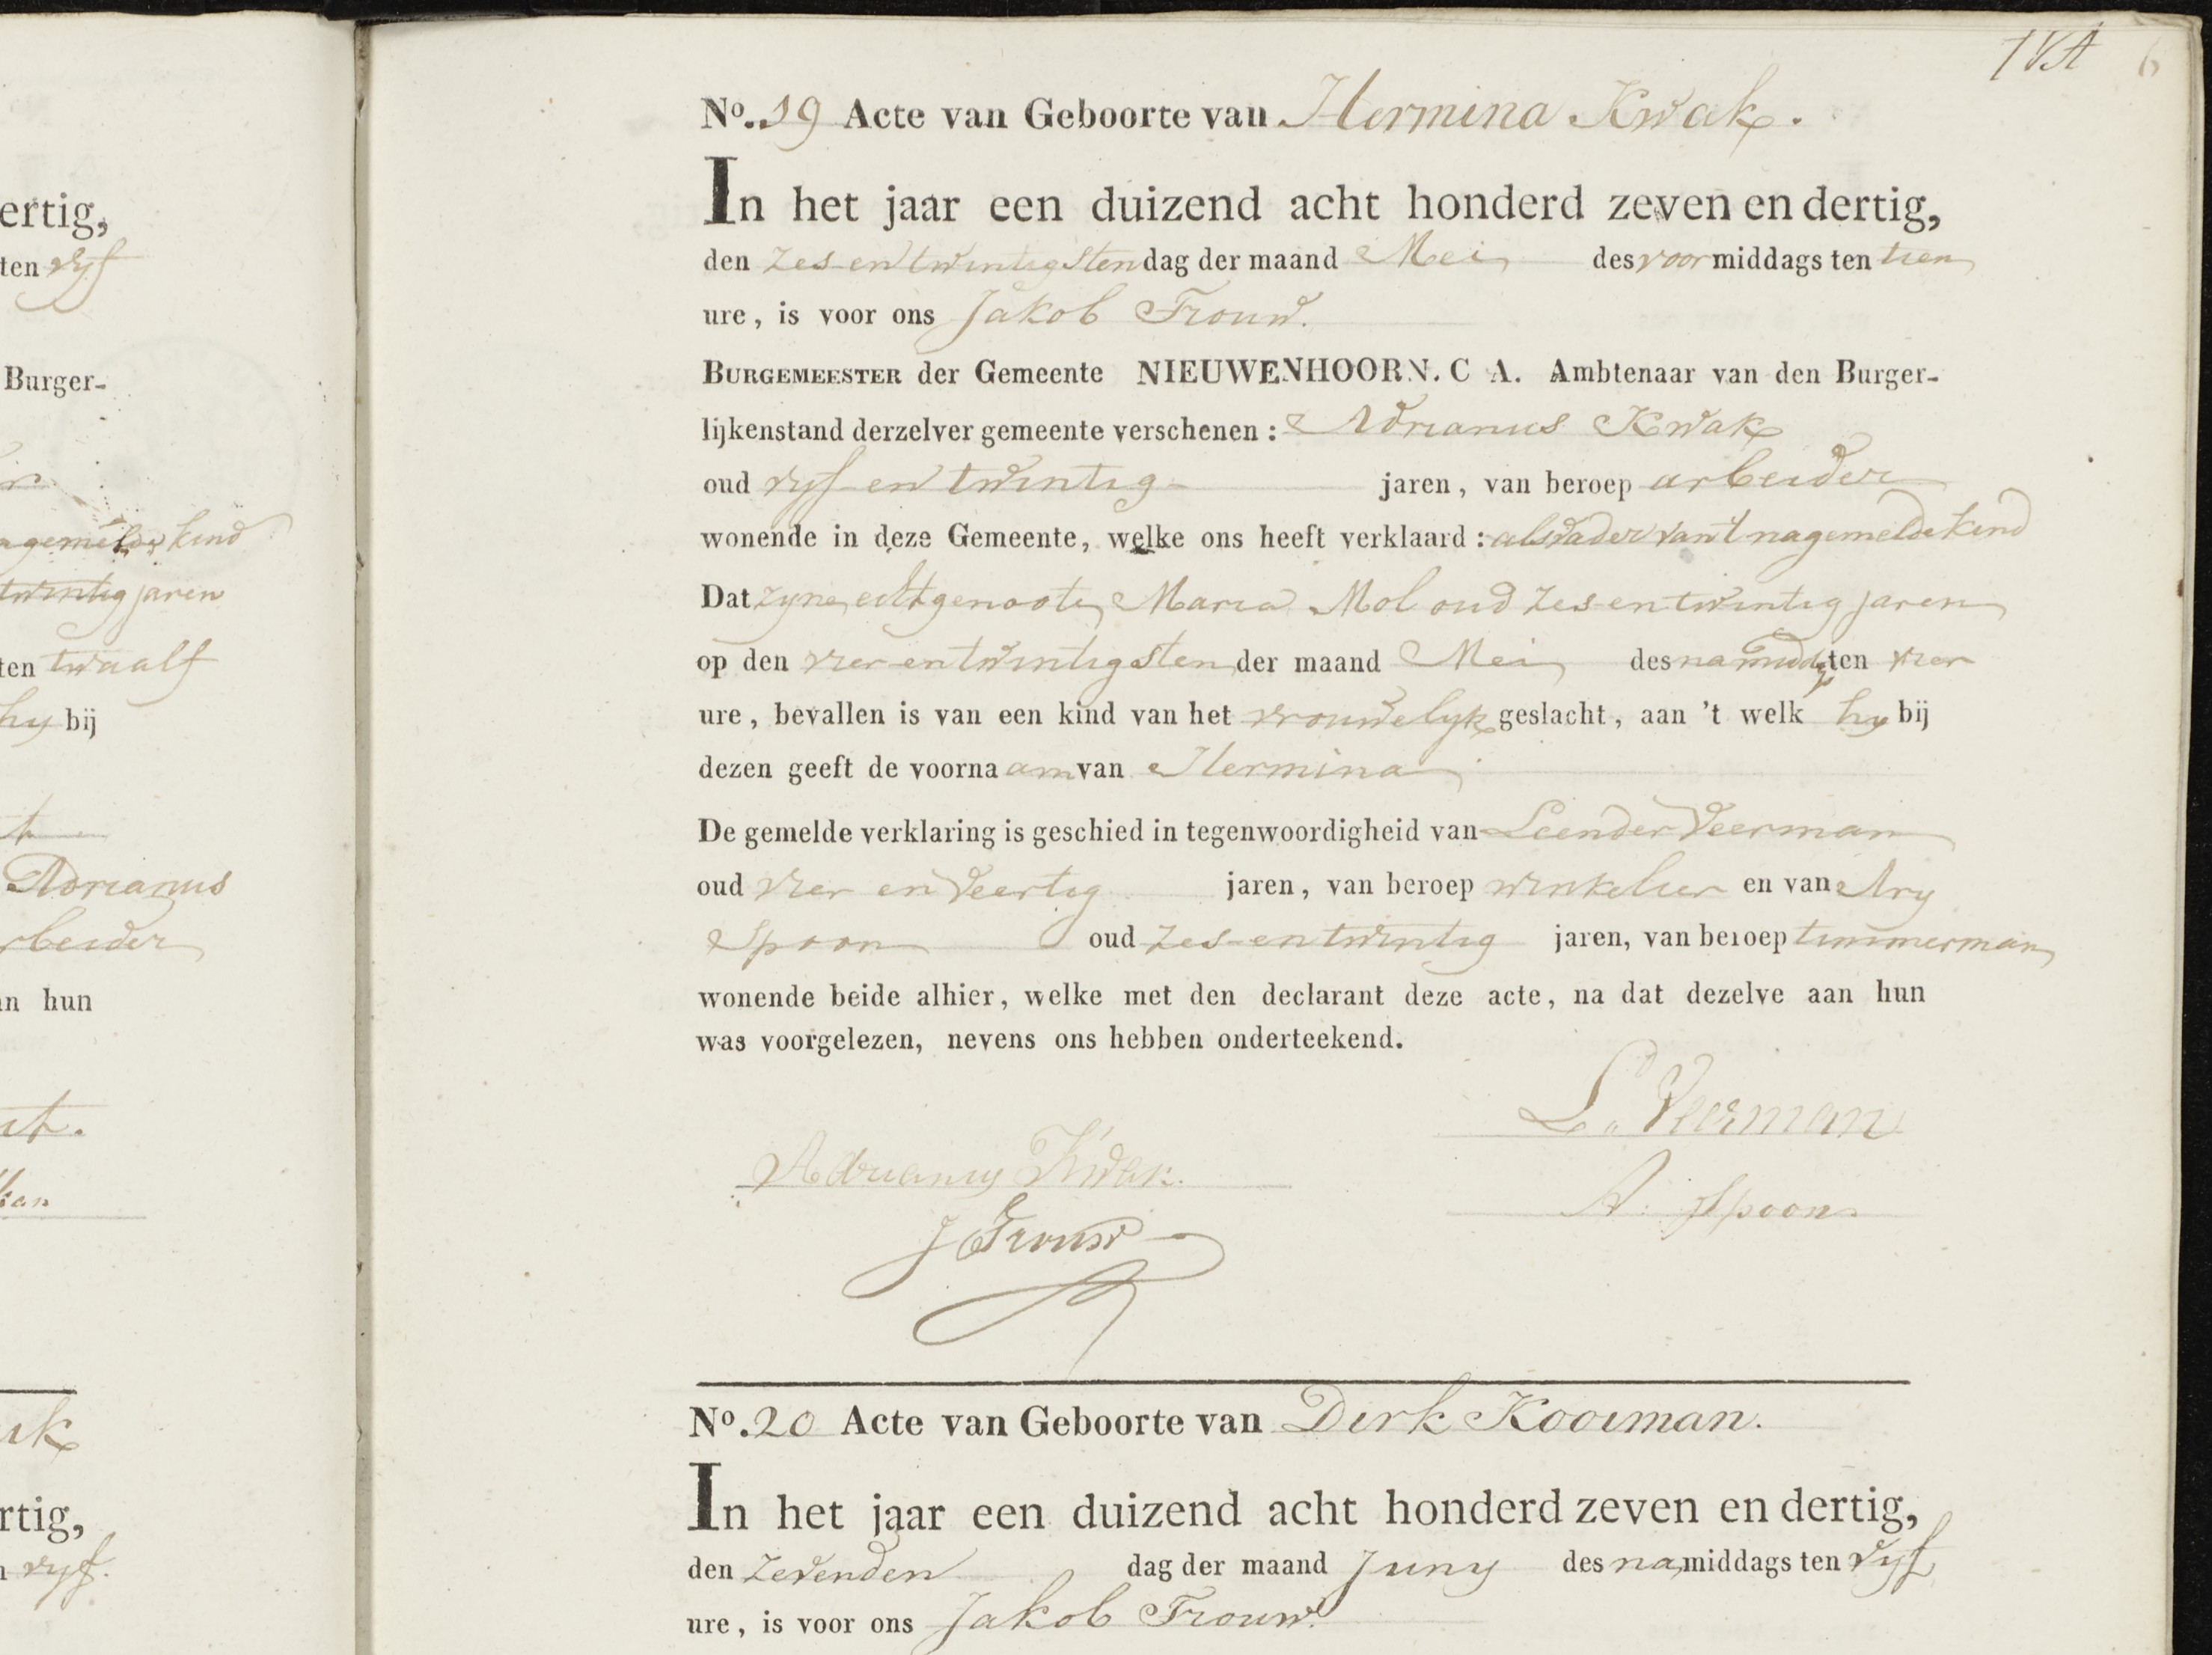 ertig,
ten vyf
Burger-
nagemelde kind
twintig jaren
ten twaalf
hy bij
Adrianus
rbeider
an hun
rtig,
vyf.
No. 19 Acte van Geboorte van Hermina Kwak.
In het jaar een duizend acht honderd zeven en dertig,
den zes-entwintigsten dag der maand Mei des voormiddags ten tien
ure, is voor ons Jakob Trouw.
BURGEMEESTER der Gemeente NIEUWENHOORN. C A. Ambtenaar van den Burger-
lijkenstand derzelver gemeente verschenen: Adrianus Kwak
oud vyf en twintig jaren, van beroep arbeider
wonende in deze Gemeente, welke ons heeft verklaard: als vader van 't nagemelde kind
Dat zyne echtgenoote Maria Mol oud zes-entwintig jaren
op den vier-entwintigsten der maand Mei des namiddgs ten vier
ure, bevallen is van een kind van het vrouwelyk geslacht, aan 't welk hy bij
dezen geeft de voornaam van Hermina
De gemelde verklaring is geschied in tegenwoordigheid van Leender Veerman
oud vier en veertig jaren, van beroep winkelier en van Ary
Spoon oud zes-entwintig jaren, van beroep timmerman
wonende beide alhier, welke met den declarant deze acte, na dat dezelve aan hun
was voorgelezen, nevens ons hebben onderteekend.
L. Veerman
Adrianus Kwak.
A: Spoon
J Trouw
No. 20 Acte van Geboorte van Dirk Kooiman.
In het jaar een duizend acht honderd zeven en dertig,
den zevenden dag der maand Juny des namiddags ten vyf
ure, is voor ons Jakob Trouw.